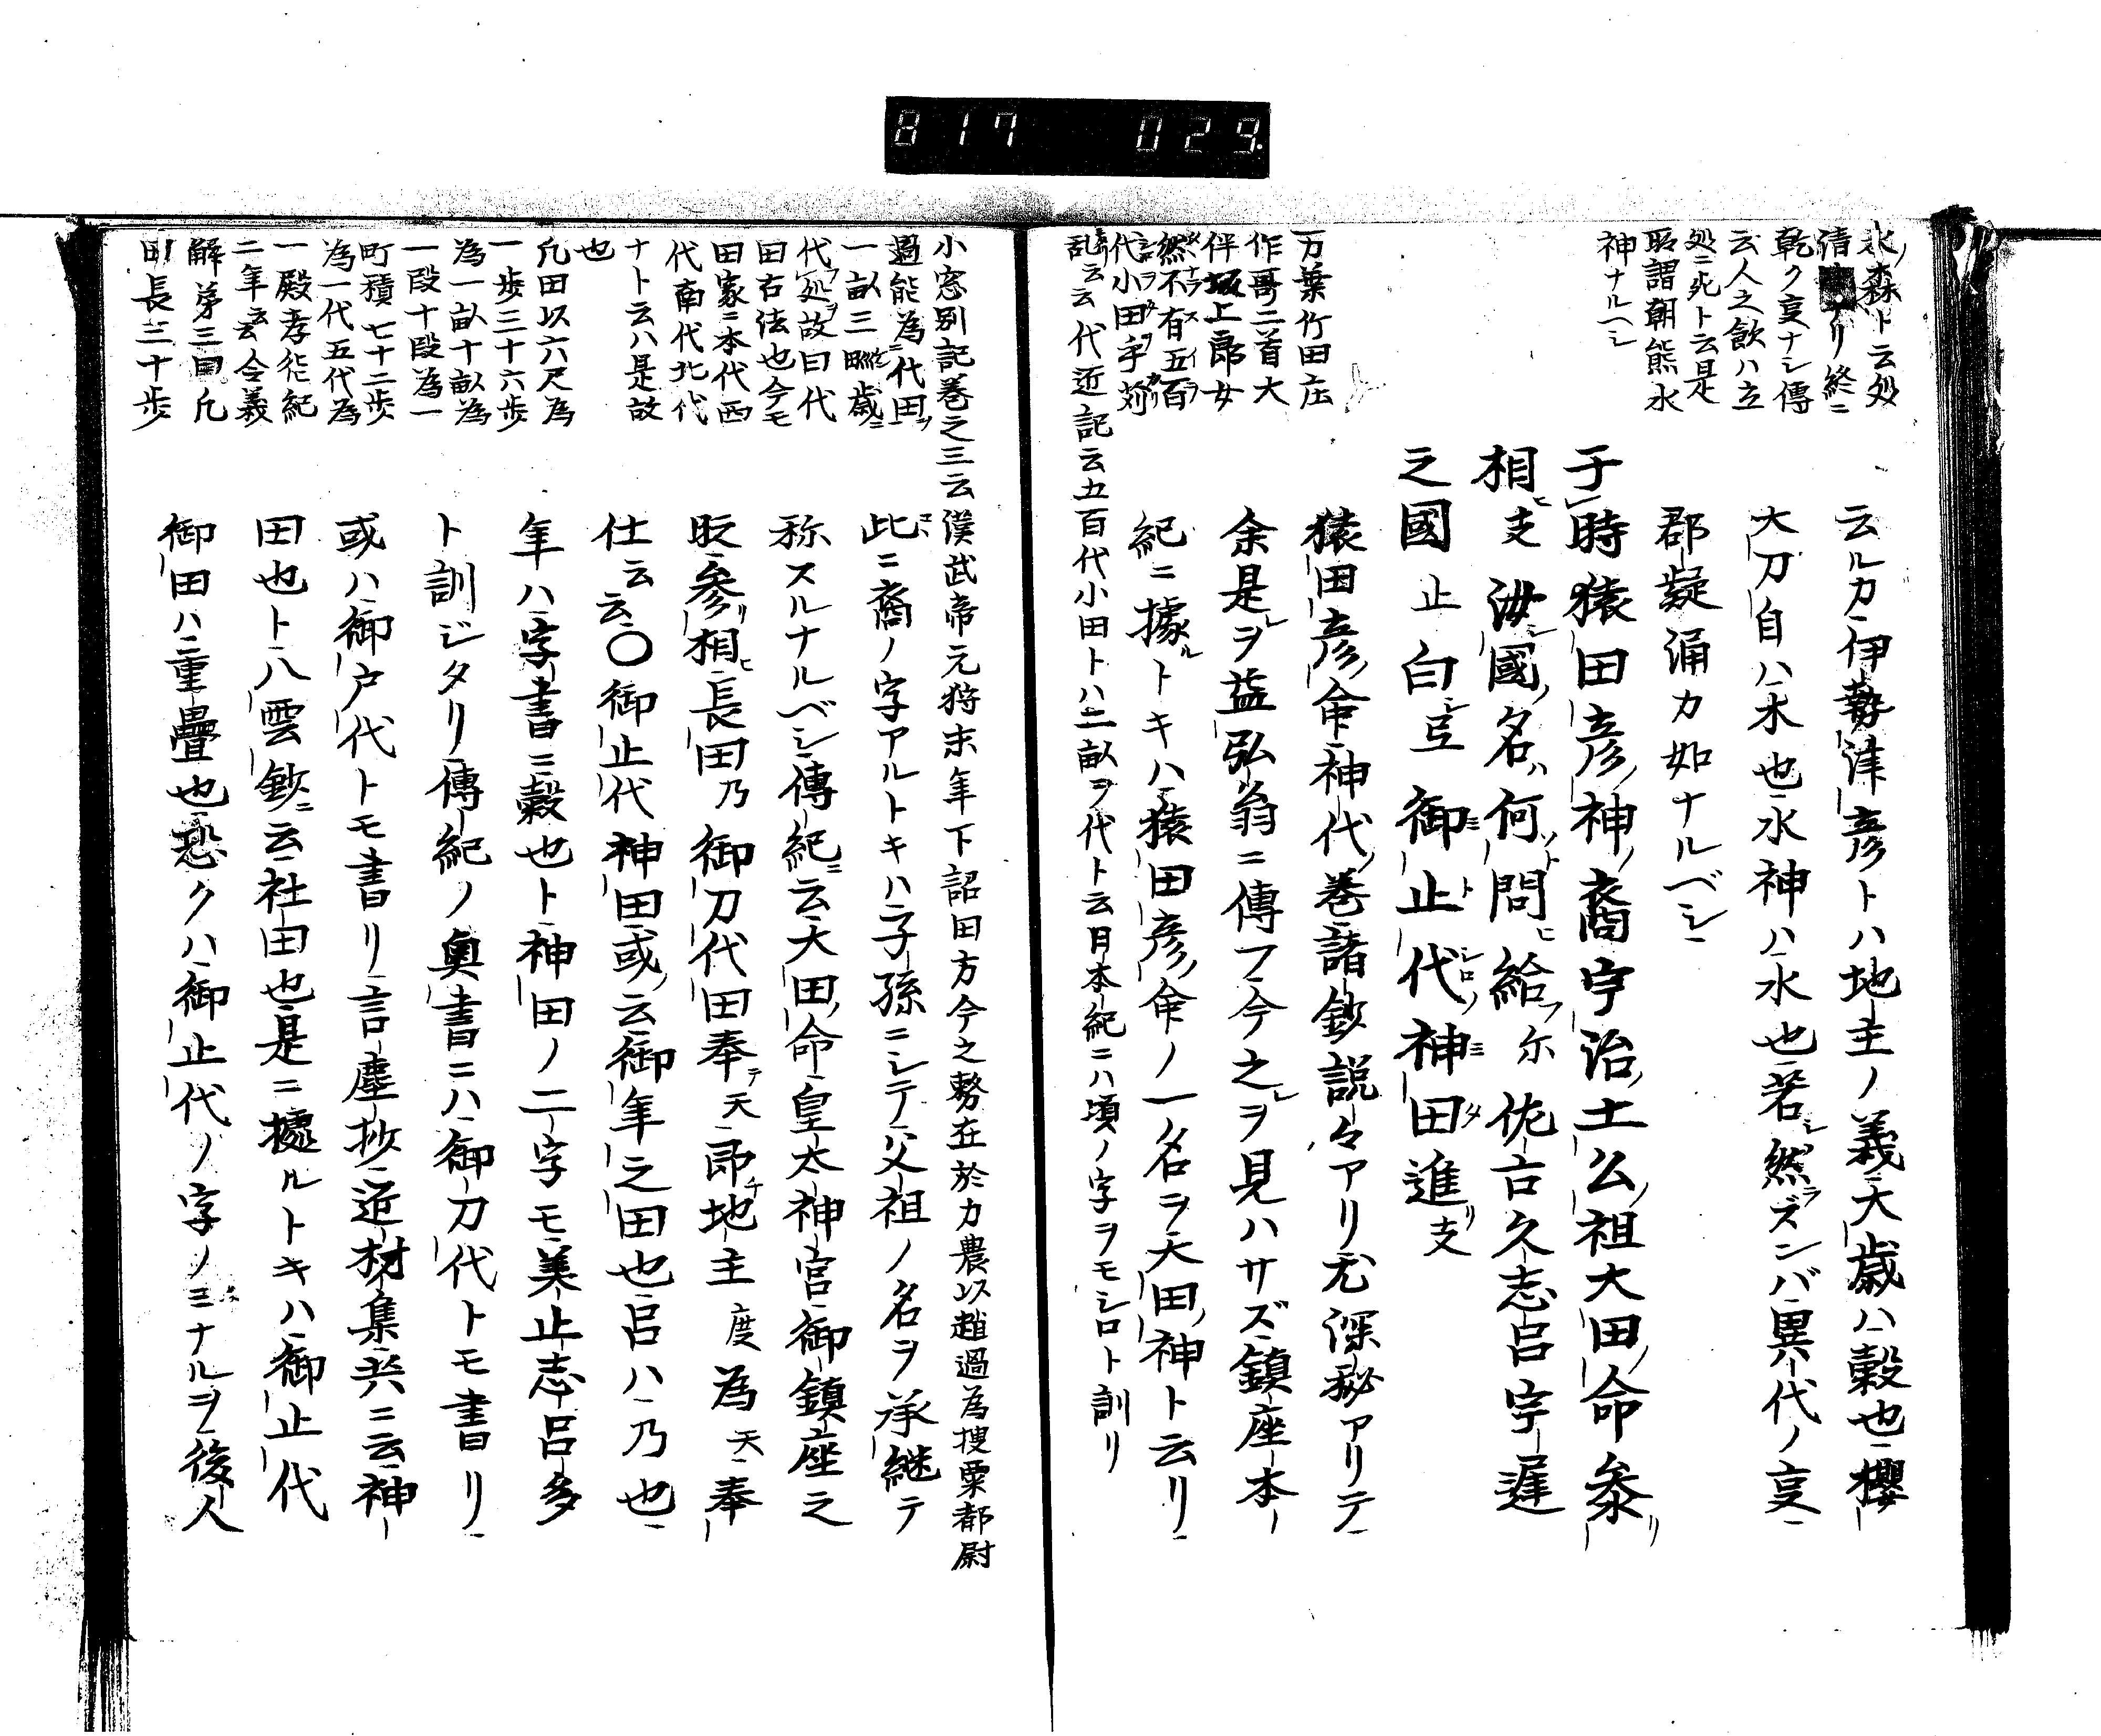 817 029.
水ノ森ト云処
清ナリ終ニ
乾ク亨ナシ傳
云人之飲ハ立
処ニ死ト云是
所謂朝熊水
神ナルヘシ
云ルカ伊勢津彦トハ地主ノ義大歳ハ穀也櫻
大刀自ハ木也水神ハ水也若シ然ラズンバ異代ノ亨
郡凝涌カ如ナルベシ
于時猿田彦ノ神ノ裔宇治ノ土公ノ祖大田ノ命参リ
相ヒ支汝シ國ノ名ハ何ソト問ヒ給フ尓佐古久志呂宇遅
之國止白シ亘御ミ止ト代シロノ神ミ田タ進リ支
猿田彦ノ命神代ノ巻諸鈔説々アリ尤深秘アリテ
余是レヲ益弘翁ニ傳フ今之レヲ見ハサズ鎮座本
紀ニ據ルトキハ猿田彦ノ命ノ一ノ名ヲ大田ノ神ト云リ
万葉竹田庄
作哥二首大
伴坂上郎女
然不有五百
代小田乎苅
乱云云代近記云五百代小田トハ二畝ヲ代ト云日本紀ニハ頃ノ字ヲモシロト訓リ
小窓別記巻之三云漢武帝元狩末年下詔田方今之務在於力農以趙過為捜粟都尉
過能為代田ヲ
一畝三甽歳ニ
代処ヲ故曰代
田右法也今モ
田家ニ本代西
代南代北代
ナト云ハ是故
也
凡田以六尺為
一歩三十六歩
為一畝十畝為
一段十段為一
町積七十二歩
為一代五代為
一殿孝徳紀
二年云云令義
解第三田凡
田長三十歩
此ニ裔ノ字アルトキハ子孫ニシテ父祖ノ名ヲ承継テ
称スルナルベシ傳紀ニ云大田ノ命皇太神宮御鎮座之
時参リ相ヒ長田乃御刀代田奉テ天即チ地主度為天奉
仕云云〇御止代神田或ハ云御年之田也呂ハ乃也
年ハ字書ニ穀也ト神田ノ二字モ美止志呂多
ト訓ジタリ傳紀ノ奥書ニハ御刀代トモ書リ
或ハ御戸代トモ書リ言塵抄逆材集共ニ云神
田也ト八雲鈔ニ云社田也是ニ據ルトキハ御止代
御田ハ重疊也恐クハ御止代ノ字ノミナルヲ後人